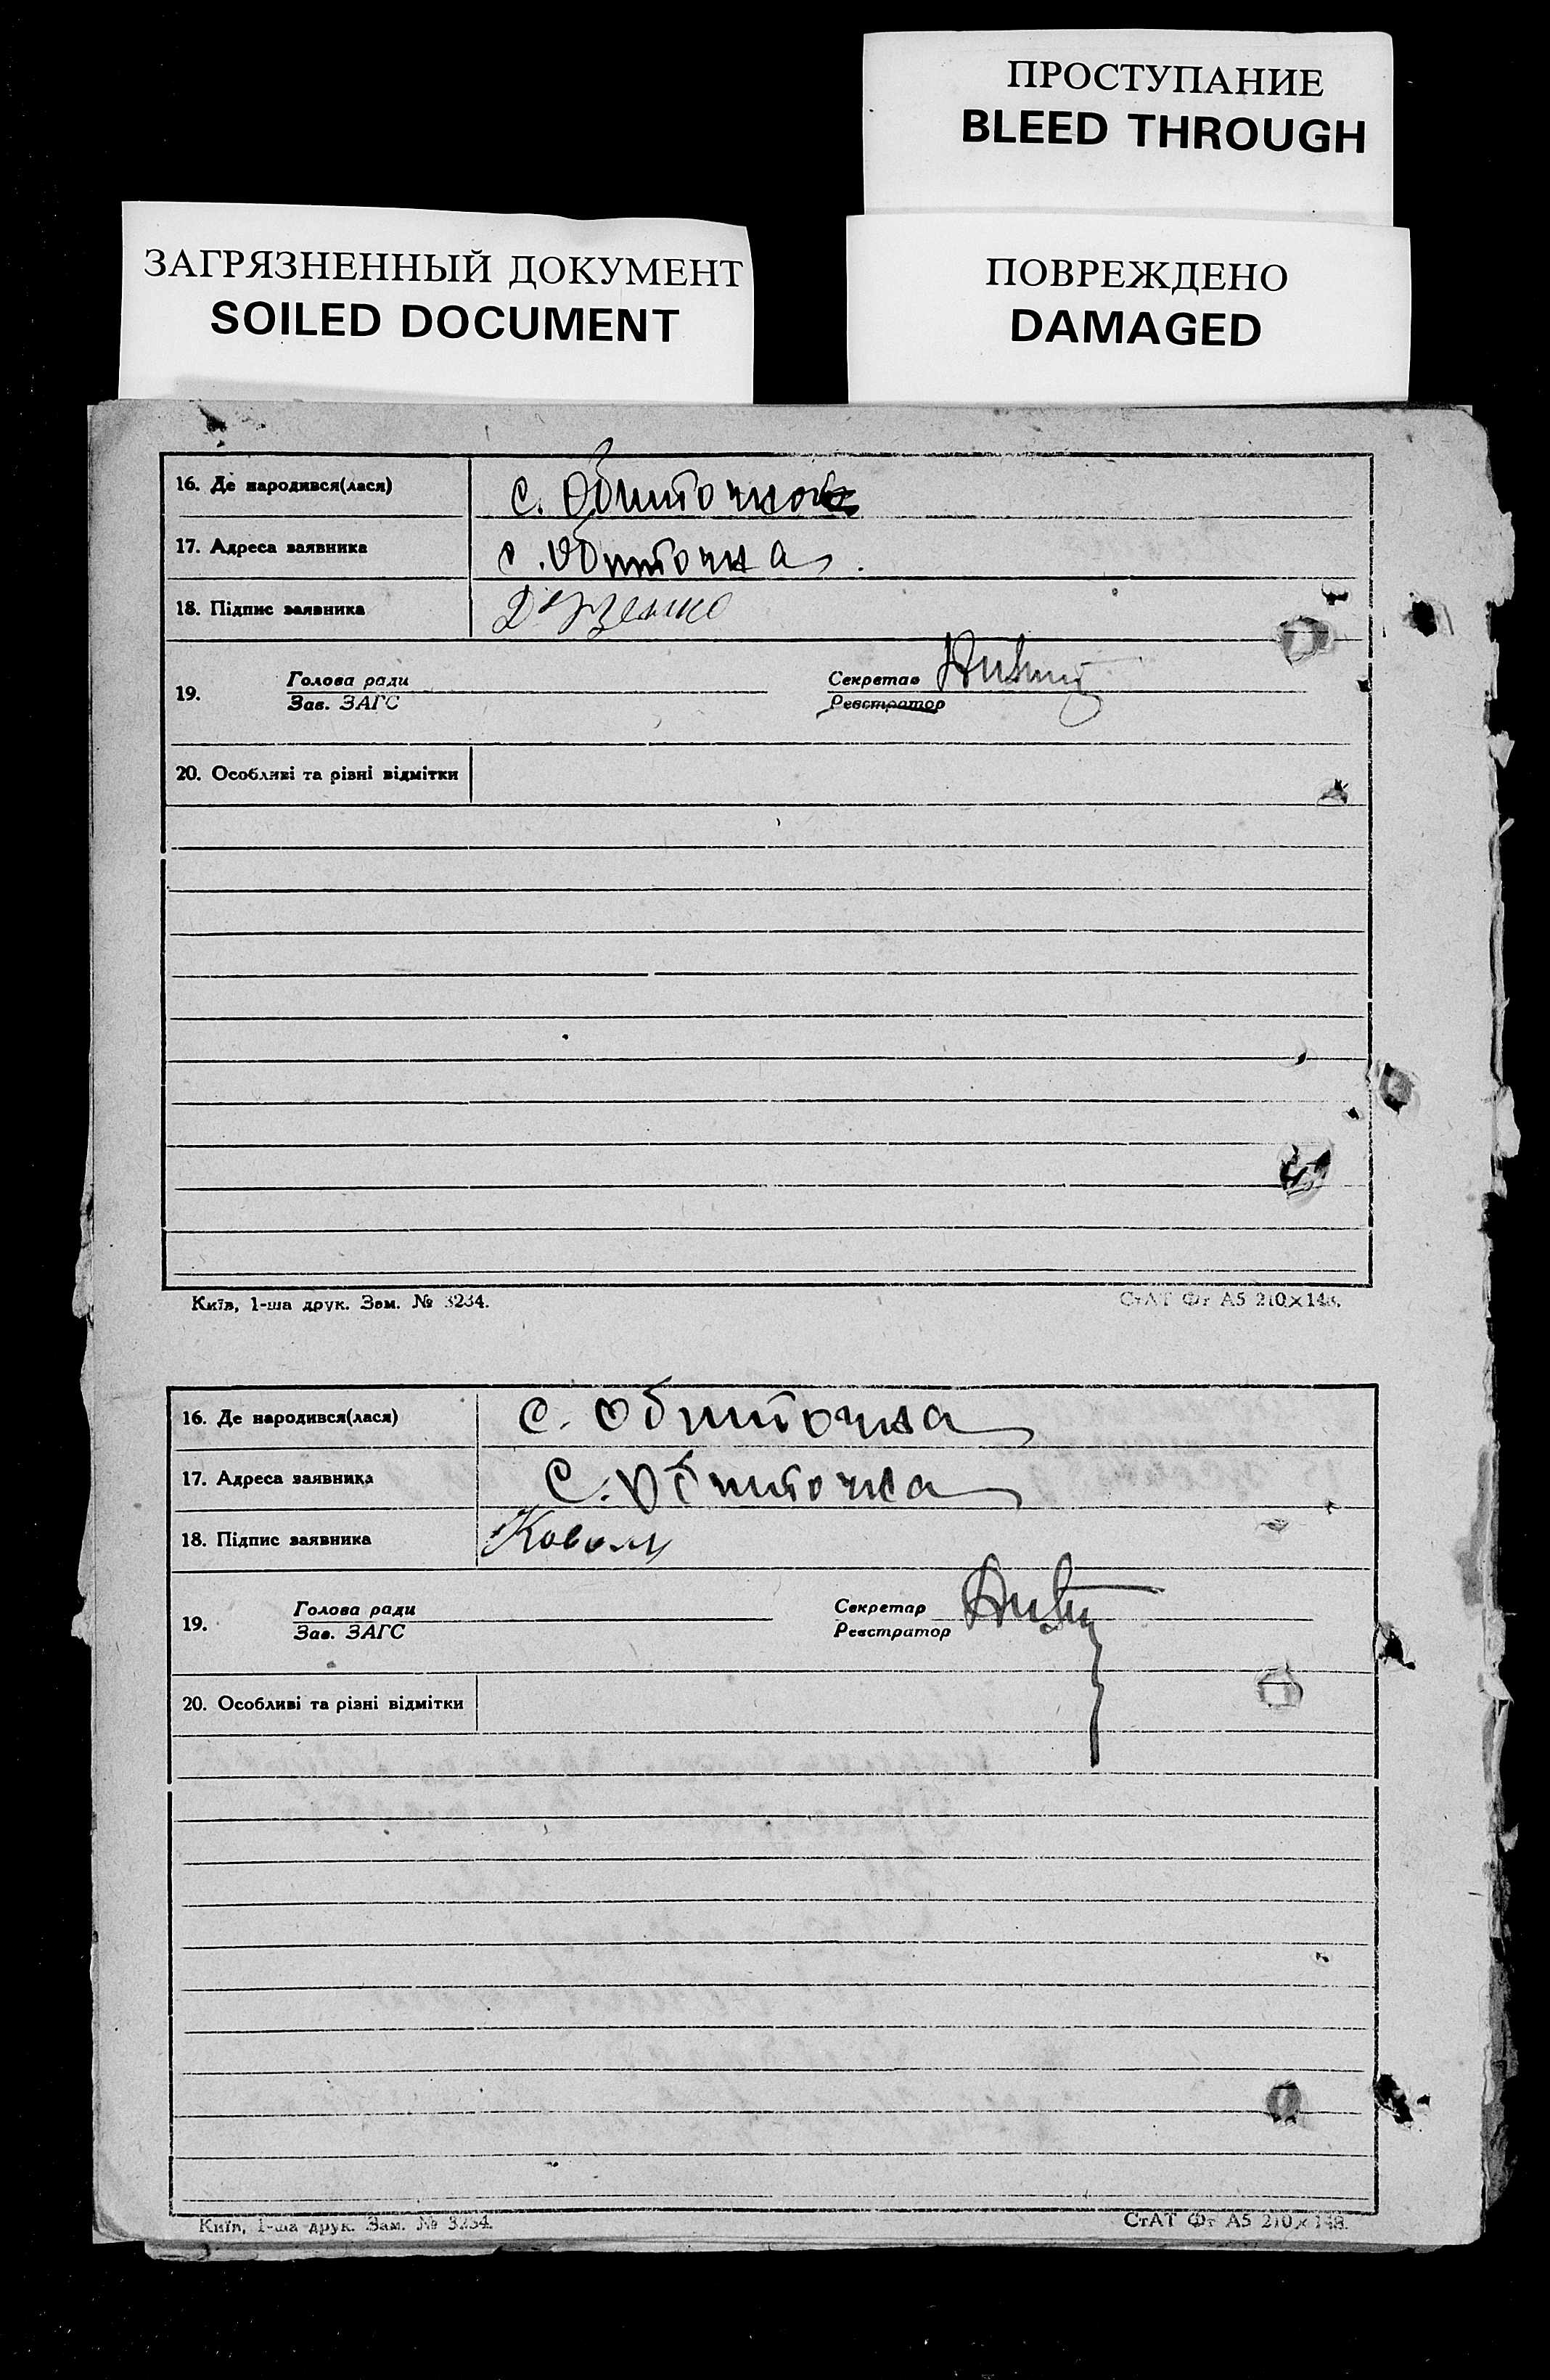 ПРОСТУПАНИЕ
BLEED THROUGH
ЗАГРЯЗНЕННЫЙ ДОКУМЕНТ
SOILED DOCUMENT
ПОВРЕЖДЕНО
DAMAGED
16. Де народився(лася) с. Обиточка
17. Адреса заявника с. Обиточка.
18. Підпис заявника
19. Голова ради Секретар
Зав. ЗАГС Реєстратор
20. Особливі та різні відмітки
Київ, 1-ша друк. Зам. № 3234. СтАТ Фт А5 210×148.
16. Де народився(лася) с. Обиточка
17. Адреса заявника с. Обиточка
18. Підпис заявника Коваль
19. Голова ради Секретар
Зав. ЗАГС Реєстратор
20. Особливі та різні відмітки
Київ, 1-ша друк. Зам. № 3234. СтАТ Фт А5 210×148.